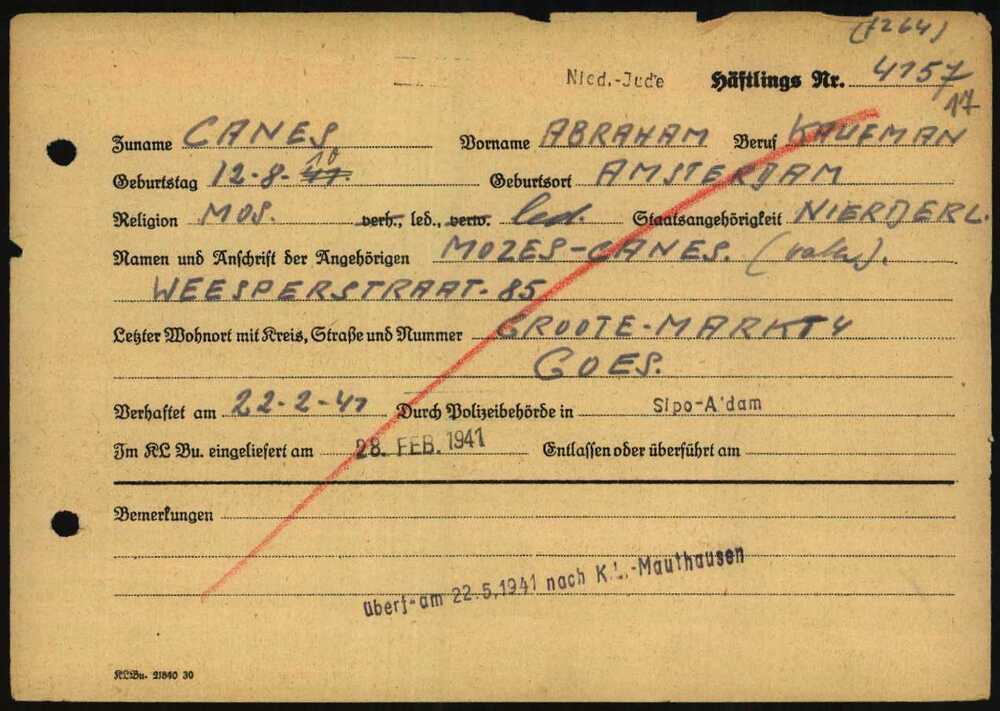 (7264)
Nied.-Jude Häftlings Nr. 4157
17
Zuname CANES Vorname ABRAHAM Beruf KAUFMAN
Geburtstag 12-8-41. 10 Geburtsort AMSTERDAM
Religion MOS. verh., led., verw. led. Staatsangehörigkeit NIERDERL.
Namen und Anschrift der Angehörigen MOZES-CANES.
WEESPERSTRAAT-85
Letzter Wohnort mit Kreis, Straße und Nummer GROOTE-MARKT 4
GOES.
Verhaftet am 22-2-41 Durch Polizeibehörde in Sipo-A'dam
Im KL Bu. eingeliefert am 28. FEB. 1941 Entlassen oder überführt am
Bemerkungen
überf-am 22.5.1941 nach K.L.-Mauthausen
KLBu. 21840 30